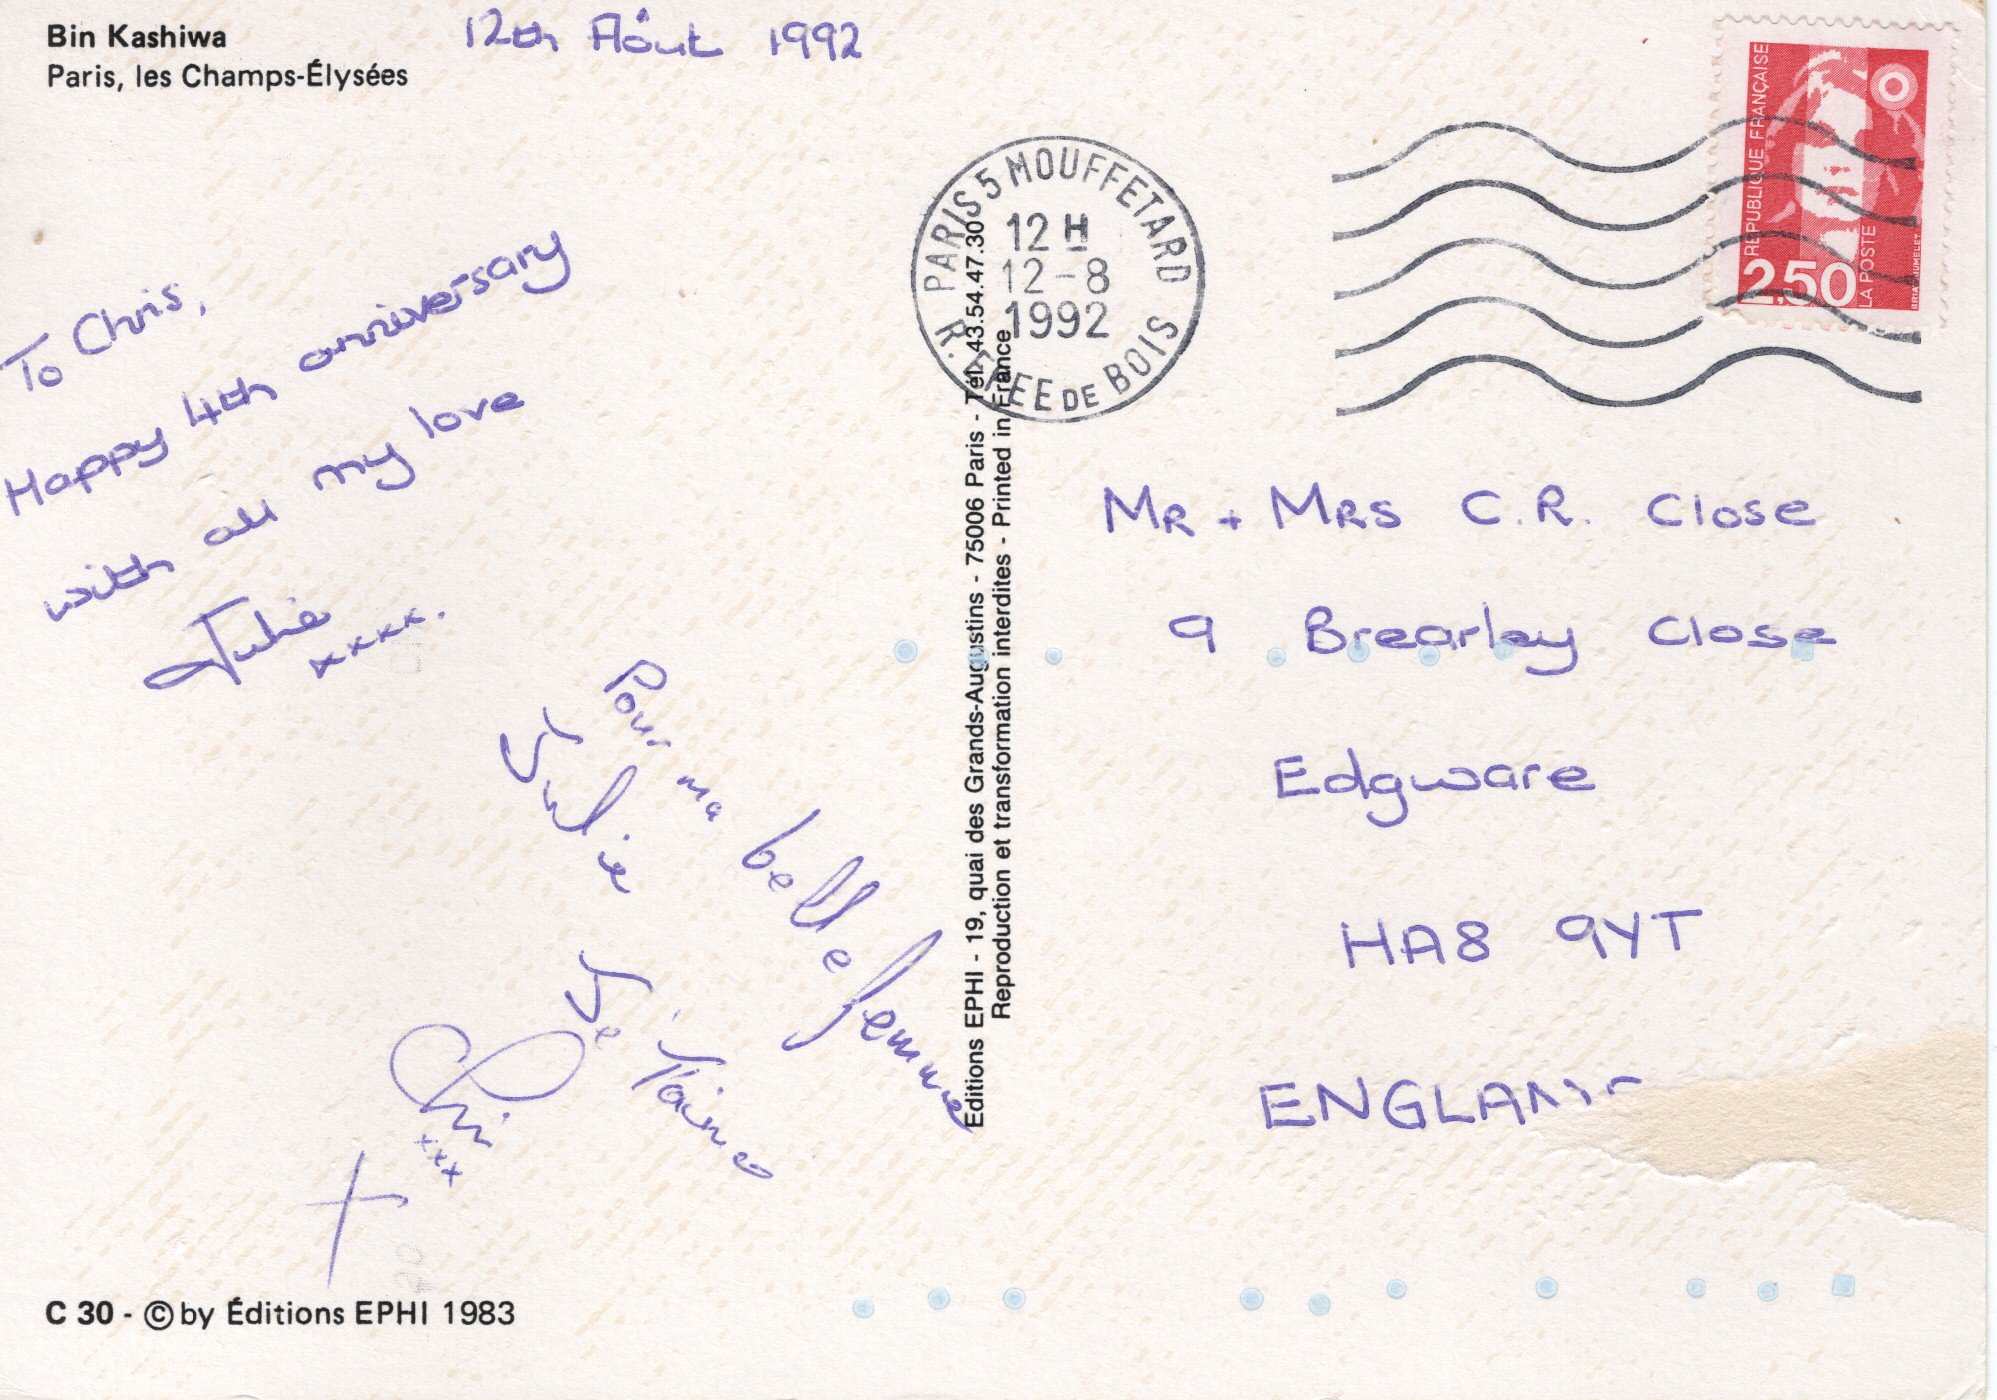 Bin Kashiwa
Paris, les Champs-Élysées
12th Aôut 1992
To Chris,
Happy 4th anniversary
with all my love
Julie
xxxx.
Pour ma belle femme
Julie
Je t'aime
Chris
xxx
C 30 - © by Éditions EPHI 1983
Editions EPHI - 19, quai des Grands-Augustins - 75006 Paris - Tél. 43.54.47.30
Reproduction et transformation interdites - Printed in France
PARIS 5 MOUFFETARD
12 H
12-8
1992
R. DE BOIS
REPUBLIQUE FRANÇAISE
2,50
LA POSTE
MR + MRS C.R. Close
9 Brearley Close
Edgware
HA8 9YT
ENGLAND